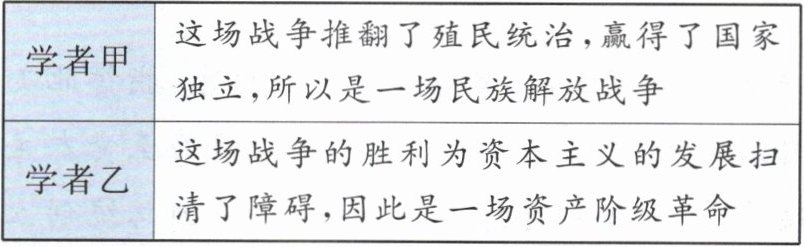 学者甲
这场战争推翻了殖民统治,赢得了国家
独立,所以是一场民族解放战争
学者乙
这场战争的胜利为资本主义的发展扫
清了障碍,因此是一场资产阶级革命